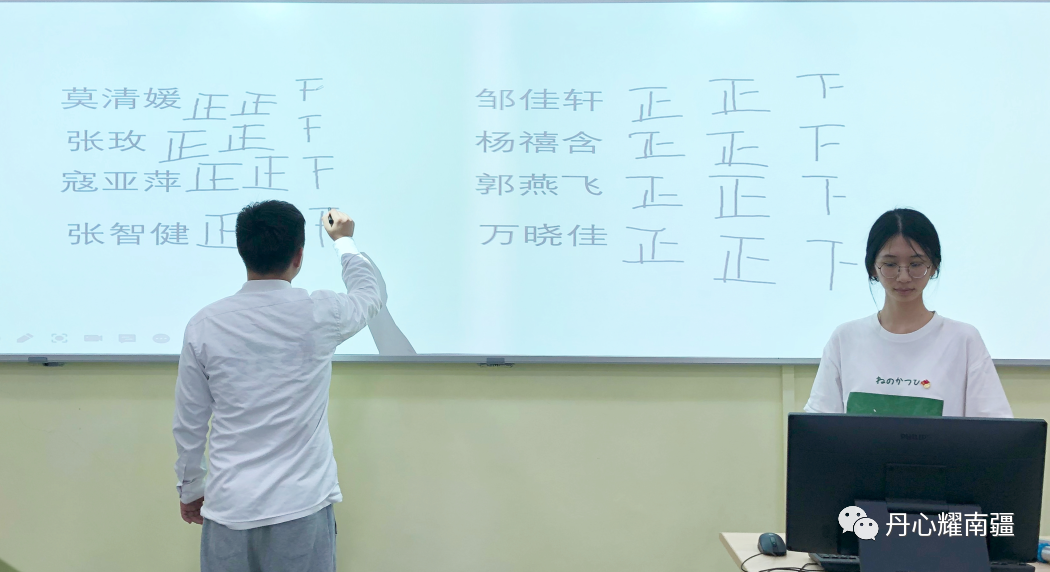 莫清媛 正 正 下
张玫 正 正 下
寇亚萍 正 正 下
张智健 正 下
邹佳轩 正 正 下
杨禧含 正 正 下
郭燕飞 正 正 下
万晓佳 正 正 下
ねのかつひ
丹心耀南疆